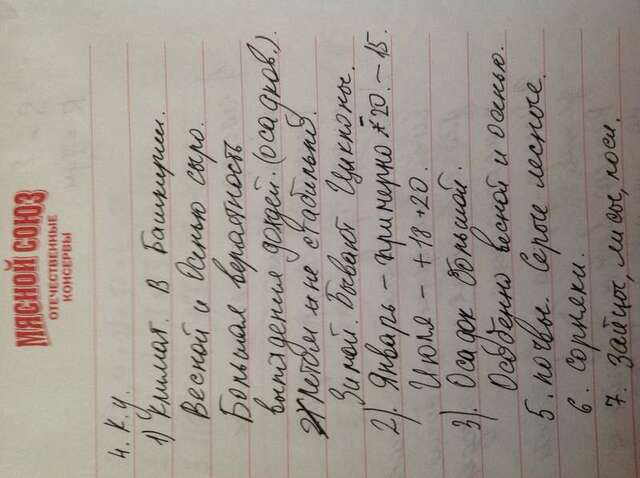 МЯСНОЙ СОЮЗ
ОТЕЧЕСТВЕННЫЕ
КОНСЕРВЫ
4. К.у.
1) Климат. В Башкирии.
Весной и Осенью сыро.
Большая вераятность
выпадения дождей. (осадков.).
Летом не стабильно.
Зимой. Бывают Циклоны.
2). Январь – примерно -20. – 15.
Июля – + 18 +20.
3). Осадок большой.
Особенно весной и осенью.
5. почвы. Серые лесные.
6. Сорняки.
7. Зайцы, лисы, лоси.